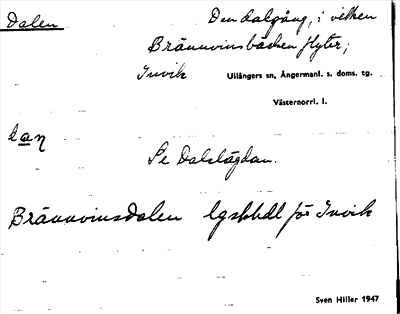 Dalen
Den dalgång, i vilken
Brännvinsbäcken flyter;
Invik Ullångers sn, Ångermanl. s. doms. tg.
Västernorrl. l.
Se Dalslägdan.
Brännvinsdalen för Invik
Sven Hiller 1947